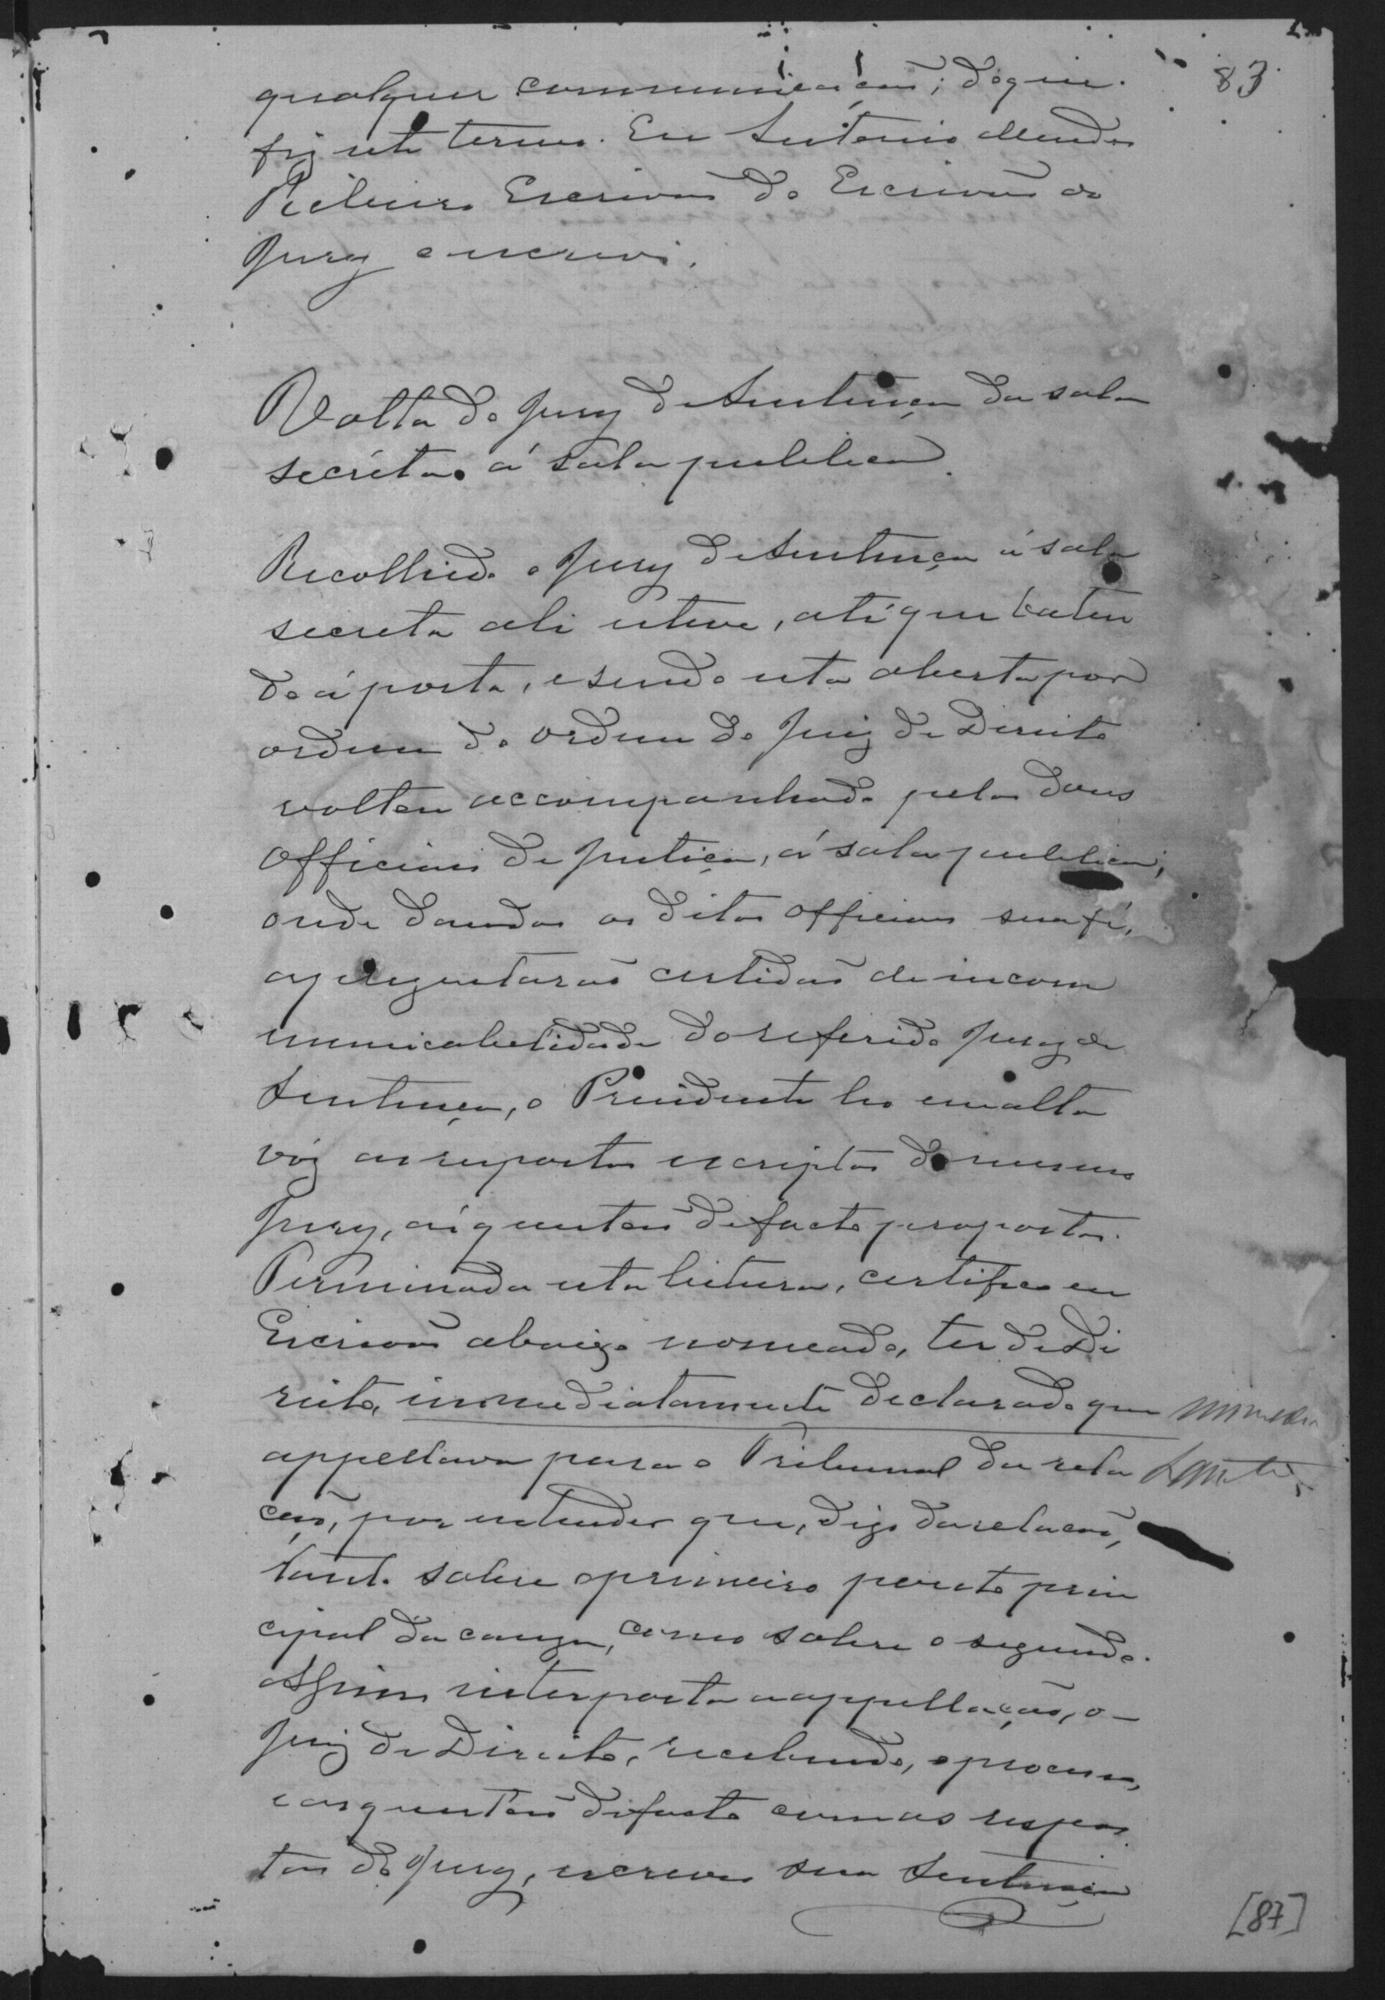 83
qualquer communicação; do que
fiz este termo. Eu Antonio Mendes
Ribeiro Escrivão do Escrivão do
Jury o escrevi.
Volta do Jury de Sentença da sala
secréta á sala publica.
Recolhido o Jury de Sentença á sala
secreta ali esteve, até que baten
do á porta, e sendo esta aberta por
ordem do ordem do Juiz de Direito
voltou accompanhado pelos dous
Officiaes de Justiça, á sala publica;
onde dando os ditos officiaes sua fé,
aprezentarão certidão de incom
municabelidade do referido Jury de
Sentença, o Presidente leo em alta
vóz as respostas escriptas do mesmo
Jury, ás questões de facto propostas.
Terminada esta leitura, certifico eu
Escrivão abaixo nomeado, ter o de Di
reito, immediatamente declarado que
appellava para o Tribunal da rela
ção, por entender que, digo da relação,
tanto sobre o primeiro ponto prin
cipal da cauza, como sobre o segundo.
Assim interposta a appellação, o
Juiz de Direito, recebendo, o processo,
e as questões de facto com as respos
tas do Jury, escreveo sua Sentença
[87]